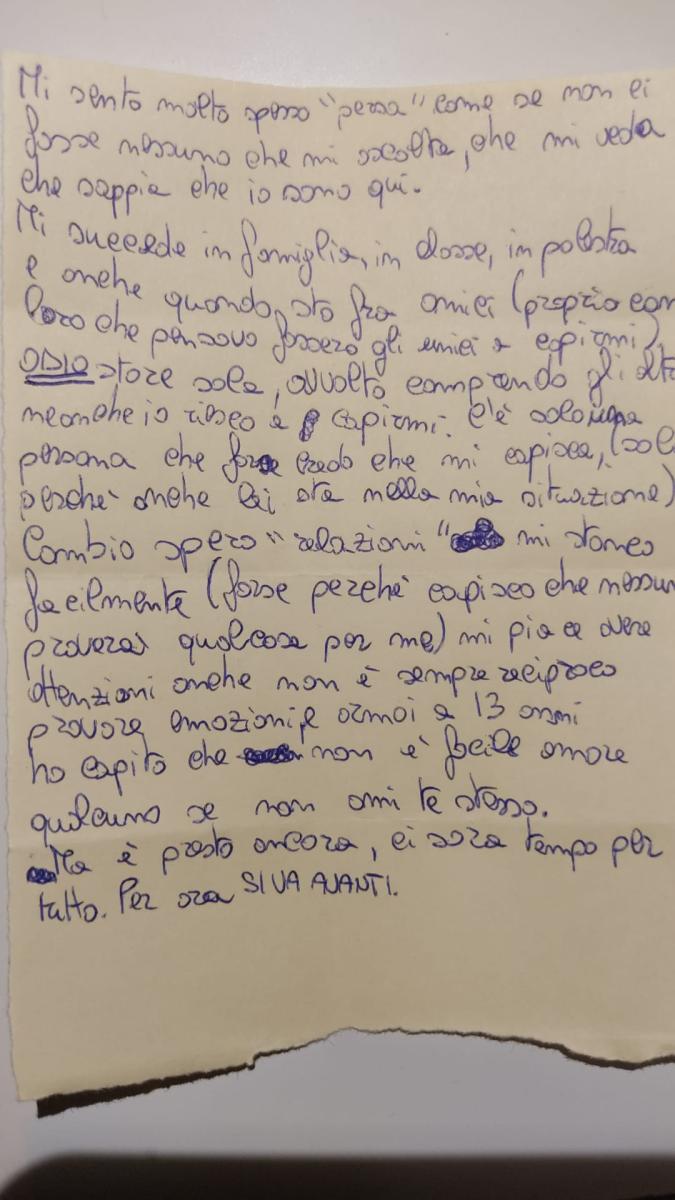 Mi sento molto spesso "persa" come se non ci
fosse nessuno che mi ascolta, che mi veda
che sappia che io sono qui.
Mi succede in famiglia, in classe, in palestra
e anche quando sto fra amici (proprio con
loro che pensavo fossero gli unici a capirmi)
ODIO stare sola, avvolto comprendo gli alt
neanche io riesco a capirmi. C'è solo una
persona che forse credo che mi capisca, (sol
perché anche lei sta nella mia situazione)
Cambio spesso "relazioni" mi stanco
facilmente (forse perché capisco che nessun
proverà qualcosa per me) mi piace avere
attenzioni anche non è sempre reciproco
provare emozioni, e ormai a 13 anni
ho capito che non è facile amare
qualcuno se non ami te stesso.
Ma è presto ancora, ci sarà tempo per
tutto. Per ora SI VA AVANTI.